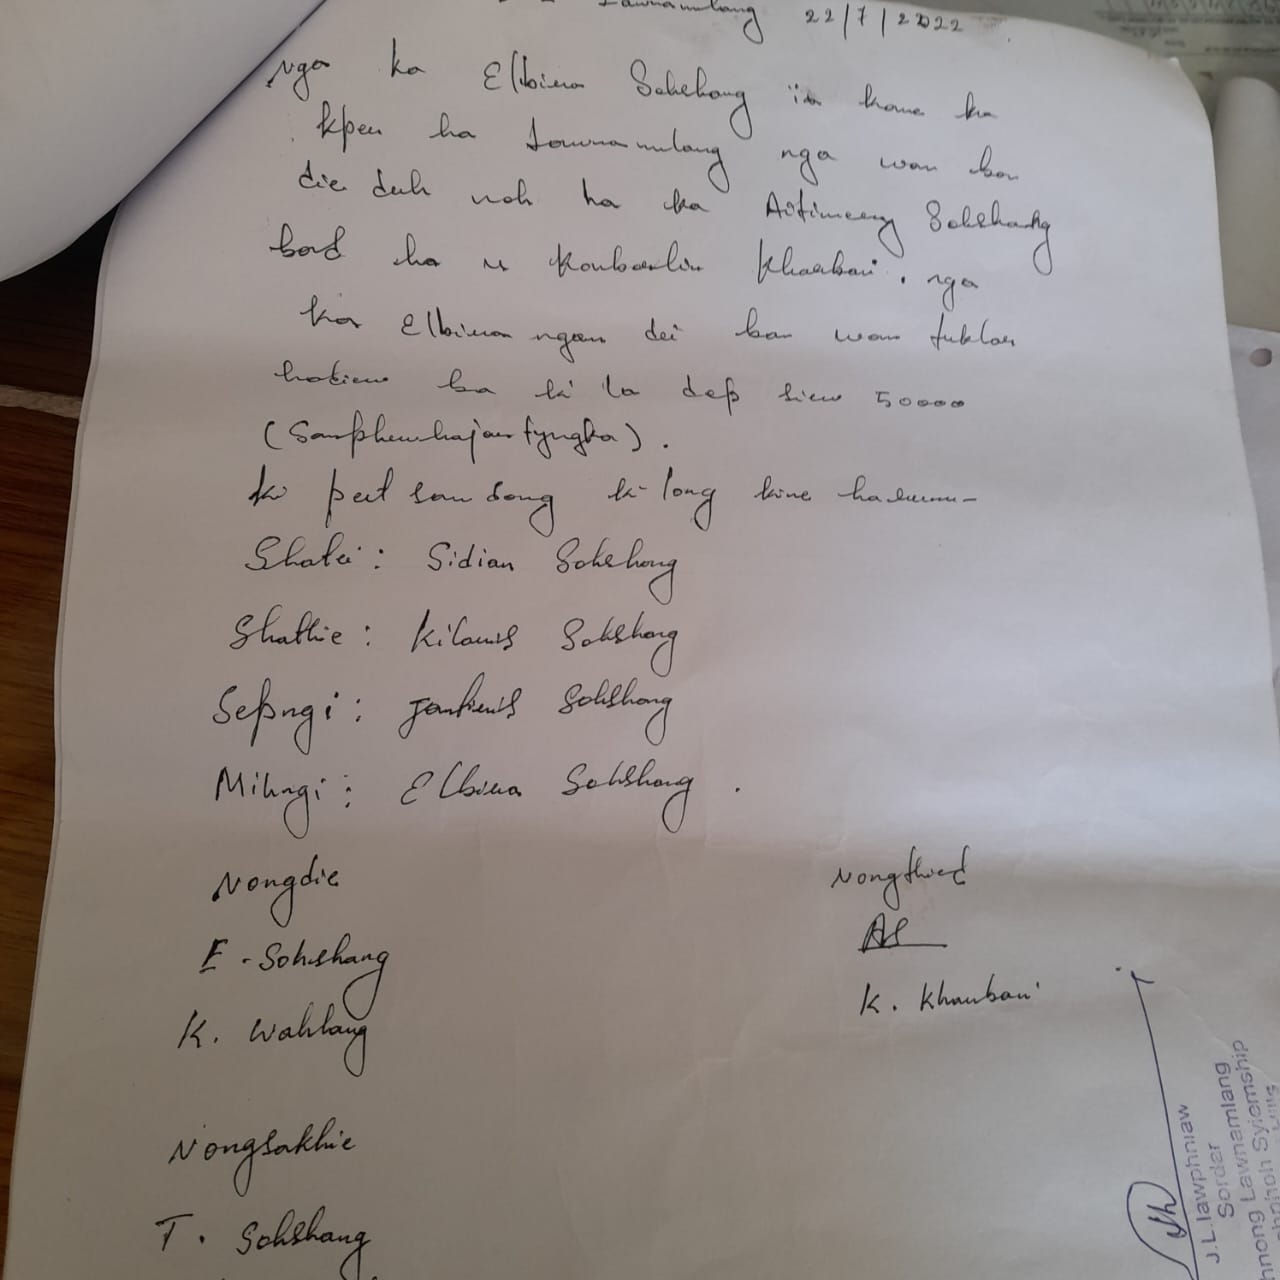 Lawnamlang 22/7/2022
Nga ka Elbina Sohshang ïa kane ka
kper ha Lawnamlang nga wan ban
die duh noh ha ka Aitimeng Sohshang
bad ha u Konbarlin Kharbani. nga
ka Elbina ngam dei ban wan tuklar
hadien ba ki la dep siew 50000
(Sanphewhajar tyngka).
ki pud sam dong ki long kine harum-
Shatei: Sidian Sohshang
Shathie: Kilanis Sohshang
Sepngi: Sohshang
Mihngi: Elbina Sohshang.
Nongdie Nongthied
E. Sohshang AS
K. Wahlang K. Kharbani
Nongsakhie
T. Sohshang
J.L. Iawphniaw
Sordar
Lawnamlang
Syiemship